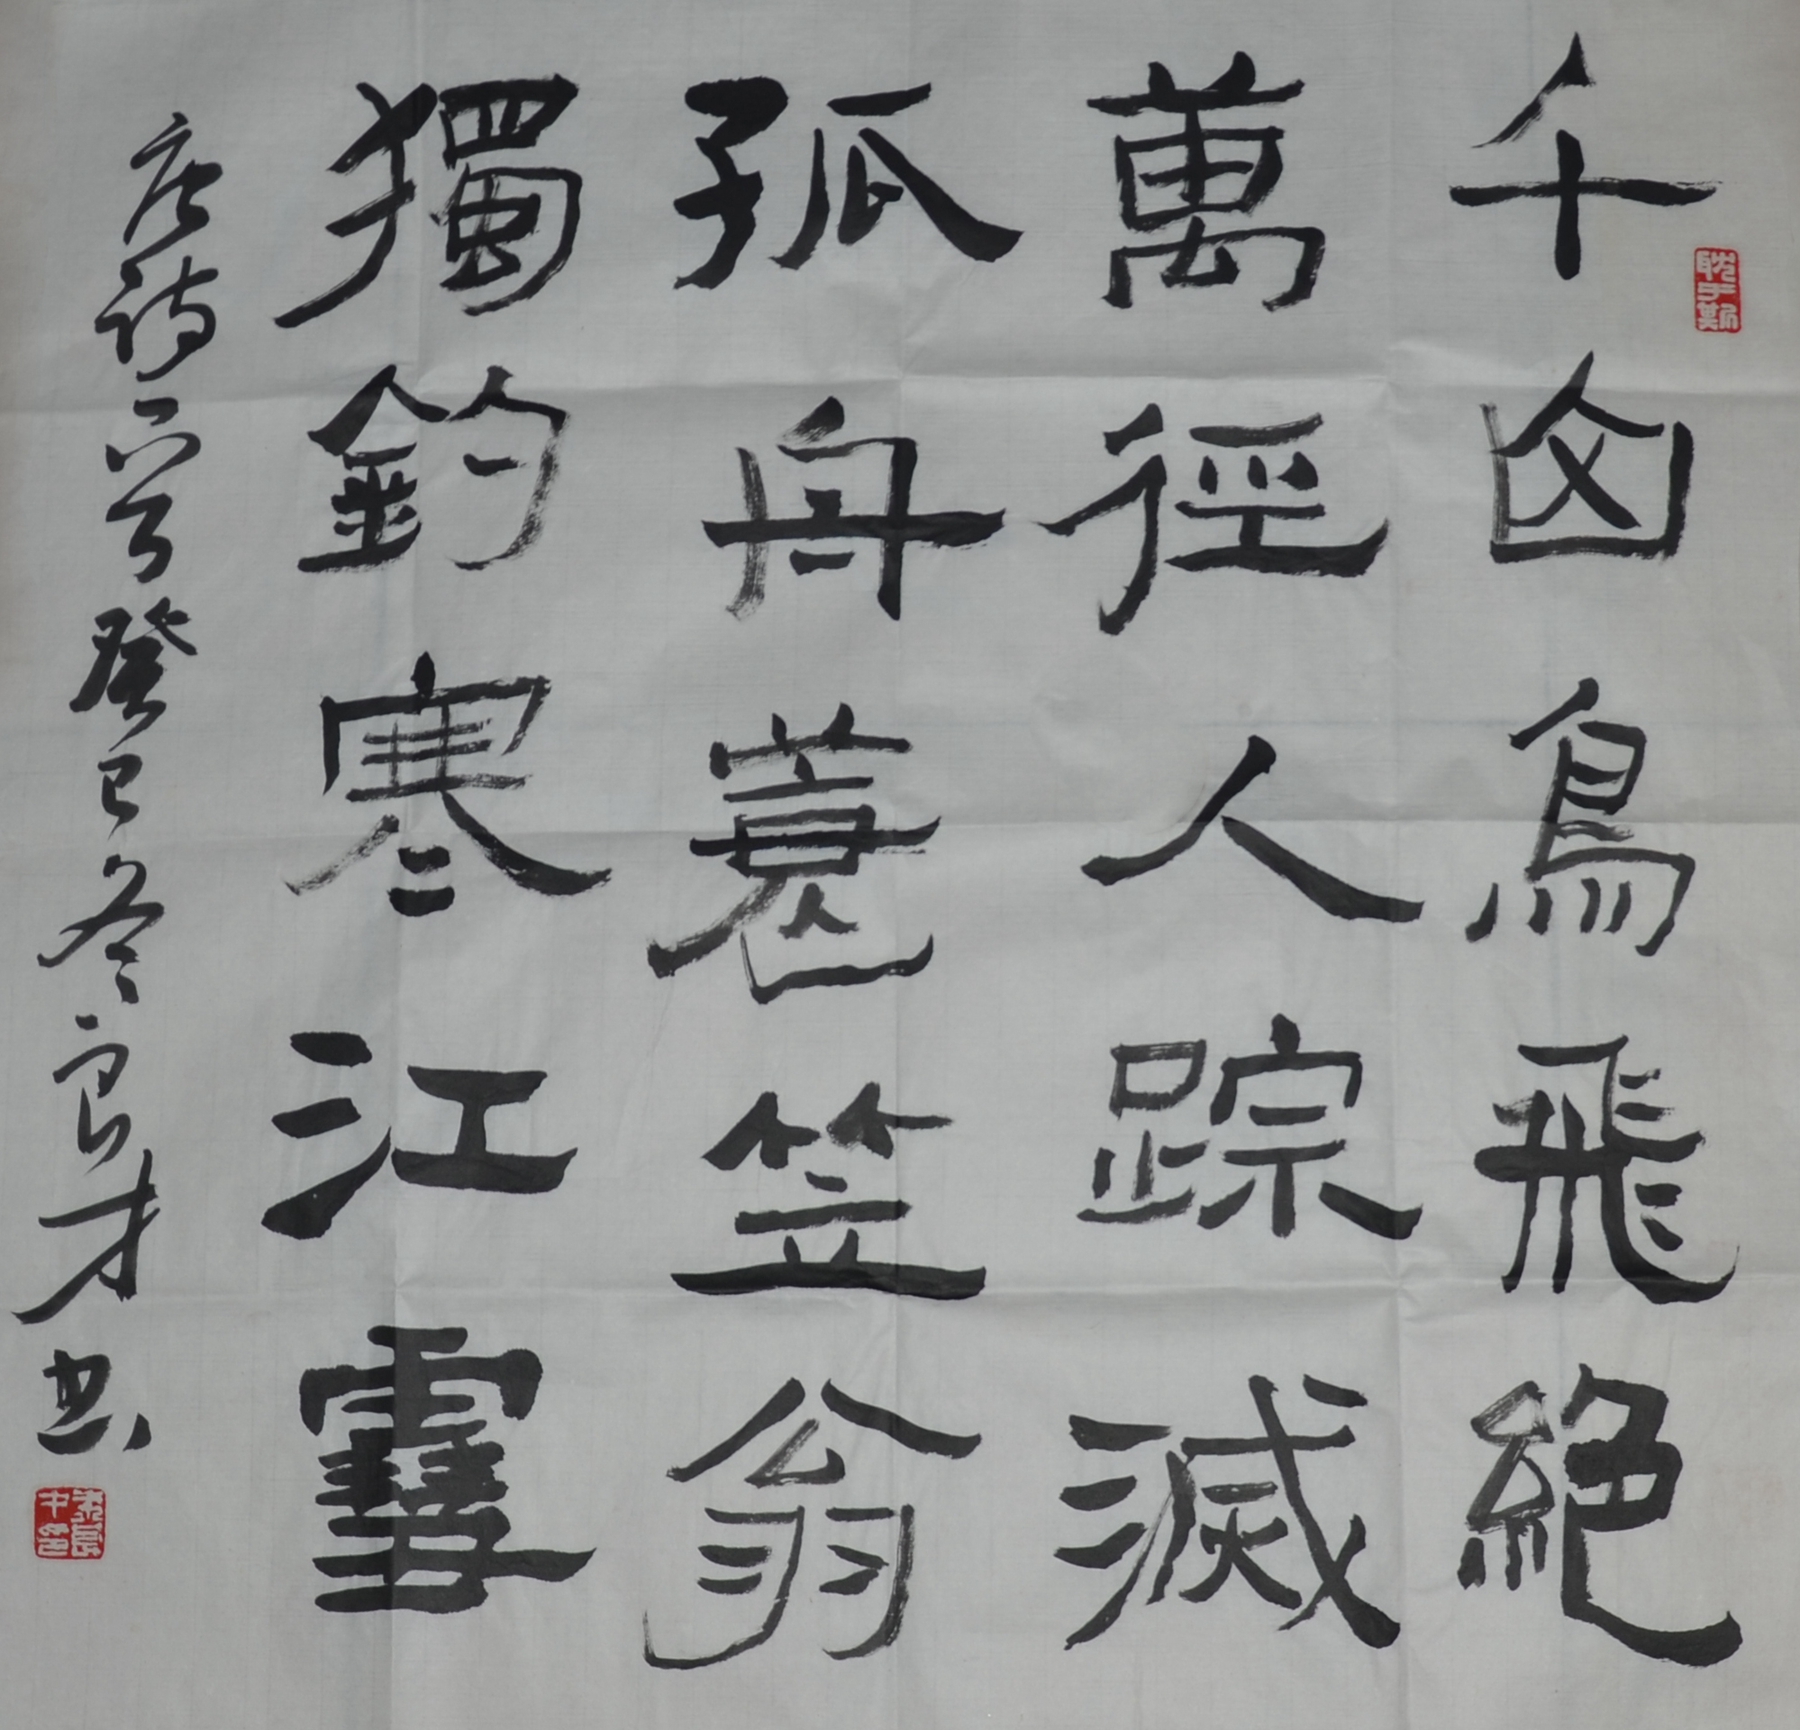 耽于斯
千山鳥飛絕
萬徑人踪滅
孤舟蓑笠翁
獨釣寒江雪
唐詩一首癸巳冬良才书